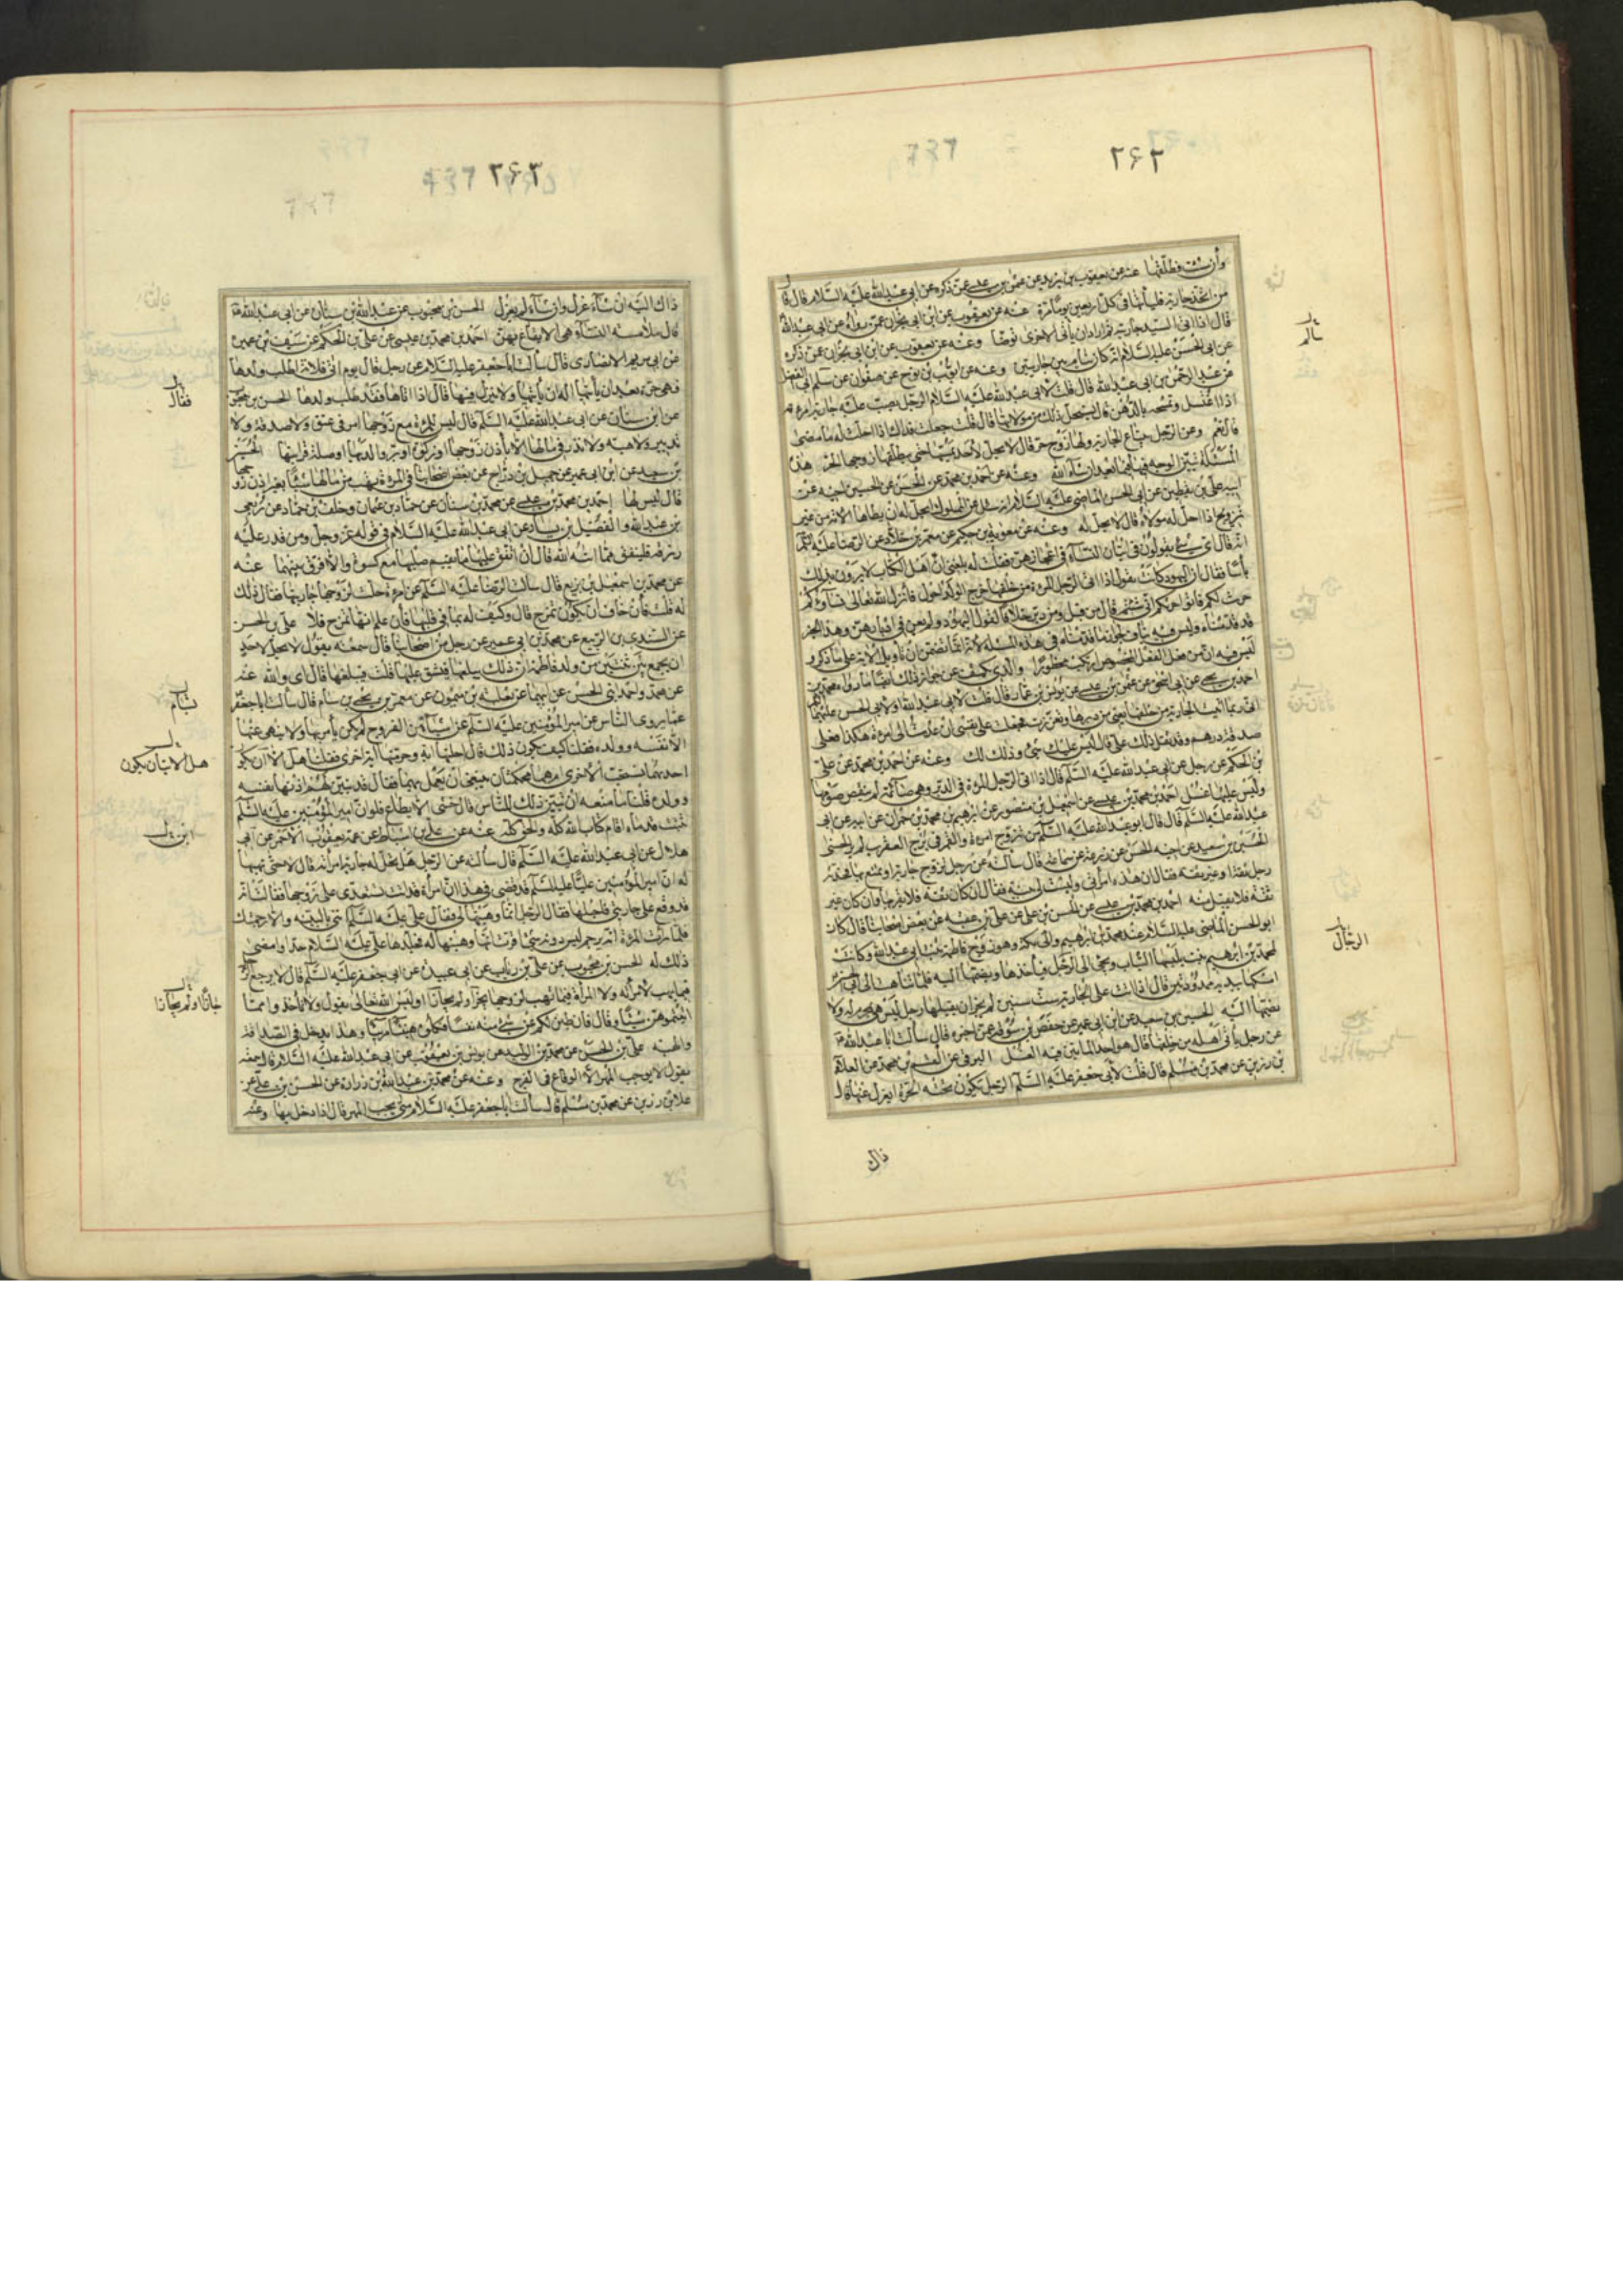 ٢۶٢
وان شئت فطلقها عنه عن يعقوب بن يزيد عن عثمن بن عيسى عمن ذكره عن ابى عبد الله عليه السلام قال قال
من اتخذ جارية فلياتها فى كل اربعين يوما مرة عنه عن يعقوب عن ابن ابى نجران عمن رواه عن ابى عبد الله
قال اذا اتى السيد جارية ثم اراد ان ياتى الاخرى توضا وعنه عن يعقوب عن ابن ابى نجران عمن ذكره
عن ابى الحسن عليه السلام انه كان ينام بين جاريتين وعنه عن ايوب بن نوح عن صفوان عن سالم ابى الفضل
عن عبد الرحمن بن ابى عبد الله قال قلت لابى عبد الله عليه السلام الرجل يصب عليه جارية امراته
اذا اغتسل وتمسحه بالدهن قال يستحل ذلك من مولاتها قال قلت جعلت فداك اذا احلت له ما مضى
قال نعم وعن الرجل يبتاع الجارية ولها زوج حر قال لا يحل لاحد يمسها حتى يطلقها زوجها الحر هذه
المسئلة نبين الوجه فيها فيما بعد ان شاء الله وعنه عن احمد بن محمد عن الحسن عن الحسين اخيه عن
ابيه على بن يقطين عن ابى الحسن الماضى عليه السلام انه سئل عن المملوك ايحل له ان يطا الامة من غير
تزويج اذا احل له مولاه قال لا يحل له وعنه عن معوية بن حكيم عن معمر بن خلاد عن الرضا عليه السلم
انه قال اى شئ يقولون فى اتيان النساء فى اعجازهن فقلت له بلغنى ان اهل الكتاب لا يرون بذلك
باسا فقال ان اليهود كانت تقول اذا اتى الرجل المرءة من خلفها خرج الولد احول فانزل الله تعالى نساؤكم
حرث لكم فاتوا حرثكم انى شئتم قال من قبل ومن دبر خلافا لقول اليهود ولم يعن فى ادبارهن وهذا الخبر
قد قدمناه وليس فيه
احمد بن عيسى عن ابى اسحق عن عثمن بن عيسى عن يونس بن عمار قال قلت لابى عبد الله او لابى الحسن عليهما
انى ربما اتيت الجارية من خلفها يعنى من دبرها ونذرت فجعلت على نفسى ان عدت الى امرءة هكذا فعلى
صدقة درهم وقد ثقل ذلك على قال ليس عليك شئ وذلك لك وعنه عن احمد بن محمد عن على
بن الحكم عن رجل عن ابى عبد الله عليه السلم قال اذا اتى الرجل المرءة فى الدبر وهى صائمة لم ينقض صومها
وليس عليها غسل احمد بن محمد بن عيسى عن اسمعيل بن منصور عن ابرهيم بن محمد بن حمران عن ابيه عن ابى
عبد الله عليه السلم قال قال ابو عبد الله عليه السلم من تزوج امرءة والقمر فى برج العقرب لم ير الحسنى
الحسين بن سعيد عن اخيه الحسن عن زرعة عن سماعة قال سالته عن رجل تزوج جارية او تمتع بها فحدثه
رجل ثقة او غير ثقة فقال ان هذه امراتى وليست لى بينة فقال ان كان ثقة فلا يقربها وان كان غير
ثقة فلا يقبل منه احمد بن محمد بن عيسى عن الحسن بن على عن على بن عقبة عن بعض اصحابنا قال كان
ابو الحسن الماضى عليه السلام عند محمد بن ابرهيم والى مكة وهو زوج فاطمة بنت ابى عبد الله وكانت
لمحمد بن ابرهيم بنت يلبسها الثياب وتجئ الى الرجل فياخذها ويضمها اليه فلما تناهت الى ابى الحسن
امسكها بيديه ممدودتين قال اذا اتت على الجارية ست سنين لم يجز ان يقبلها رجل ليس هى بمحرم له ولا
يضمها اليه الحسين بن سعيد عن ابن ابى عمير عن حفص بن سوقة عمن اخبره قال سالت ابا عبد الله
عن رجل ياتى اهله من خلفها قال هو احد الماتيين فيه الغسل البرقى عن القسم بن محمد عن العلاء
بن رزين عن محمد بن مسلم قال قلت لابى جعفر عليه السلم الرجل يكون تحته الحرة ايعزل عنها قال
ذاك
سالم
الرجال
٢۶٣
ذاك اليه ان شاء عزل وان شاء لم يعزل الحسن بن محبوب عن عبد الله بن سنان عن ابى عبد الله
قال ملامسة النساء هى الايقاع بهن احمد بن محمد بن عيسى عن على بن الحكم عن سيف بن عميرة
عن ابى مريم الانصارى قال سالت ابا جعفر عليه السلام عن رجل قال يوم اتى فلانة اطلب ولدها
فهى حرة بعد ان ياتيها اله ان ياتيها ولا ينزل فيها قال اذا اتاها فقد طلب ولدها الحسن بن محبوب
عن ابن سنان عن ابى عبد الله عليه السلم قال ليس للمرءة مع زوجها امر فى عتق ولا صدقة ولا
تدبير ولا هبة ولا نذر فى مالها الا باذن زوجها او زكوة او بر والديها او صلة قرابتها الحسين
بن سعيد عن ابن ابى عمير عن جميل بن دراج عن بعض اصحابنا فى المرءة تهب من مالها شيئا بغير اذن زوجها
قال ليس لها احمد بن محمد بن عيسى عن محمد بن سنان عن حماد بن عثمان وخلف بن حماد عن ربعى
بن عبد الله والفضيل بن يسار عن ابى عبد الله عليه السلام فى قوله عز وجل ومن قدر عليه
رزقه فلينفق مما اتيه الله قال ان انفق عليها ما يقيم صلبها مع كسوة والا فرق بينهما عنه
عن محمد بن اسمعيل بن بزيع قال سالت الرضا عليه السلم عن امرءة احلت لزوجها جاريتها فقال ذلك
له قلت فان خاف ان تكون تمزح قال وكيف له بما فى قلبها فان علم انها تمزح فلا على بن الحسن
عن السندى بن الربيع عن محمد بن ابى عمير عن رجل من اصحابنا قال سمعته يقول لا يحل لاحد
ان يجمع بين ثنتين من ولد فاطمة ان ذلك يبلغها فيشق عليها قلت يبلغها قال اى والله عنه
عن محمد واحمد ابنى الحسن عن ابيهما عن ثعلبة بن ميمون عن معمر بن يحيى بن سام قال سالت ابا جعفر
عما يروى الناس عن امير المؤمنين عليه السلم عن اشياء من الفروج لم يكن يامر بها ولا ينهى عنها
الا نفسه وولده فقلنا كيف يكون ذلك قال احلتها اية وحرمتها اية اخرى فقلنا هل الا ان يكون
احديهما نسخت الاخرى ام هما محكمتان ينبغى ان يعمل بهما فقال قد بين لهم اذ نها نفسه
وولده قلنا ما منعه ان يبين ذلك للناس قال خشى الا يطاع فلو ان امير المؤمنين عليه السلم
ثبتت قدماه اقام كتاب الله كله والحق كله عنه عن على بن اسباط عن عمه يعقوب الاحمر عن ابى
هلال عن ابى عبد الله عليه السلم قال سالته عن الرجل هل يحل له جارية امراته قال لا حتى تهبها
له ان امير المؤمنين عليا عليه السلم قد قضى فى هذا ان امراة اتت تستعدى على زوجها فقالت انه
قد وقع على جاريتى فاحبلها فقال الرجل انما وهبتها لى فقال على عليه السلم ائتنى بالبينة والا رجمتك
فلما رات المرءة انه يرجم ليس دونه شئ اقرت انها وهبتها له فجلدها على عليه السلام حدا وامضى
ذلك له الحسن بن محبوب عن على بن رئاب عن ابى عبيدة عن ابى جعفر عليه السلم قال لا يرجع الرجل
فيما يهب لامراته ولا المراة فيما تهب لزوجها يحاز اولم يحازا اوليس الله تعالى يقول ولا تاخذوا مما
اتيتموهن شيئا وقال فان طبن لكم عن شئ منه نفسا فكلوه هنيئا مريئا وهذا يدخل فى الصداق
والهبة على بن الحسن عن محمد بن الوليد عن يونس بن يعقوب عن ابى عبد الله عليه السلام قال سمعته
يقول لا يوجب المهر الا الوقاع فى الفرج وعنه عن محمد بن عبد الله بن زرارة عن الحسن بن على عن
علاء بن رزين عن محمد بن مسلم قال سالت ابا جعفر عليه السلام متى يجب المهر قال اذا دخل بها وعنه
فقال
بسام
هل الا ان يكون
حازا او لم يحازا